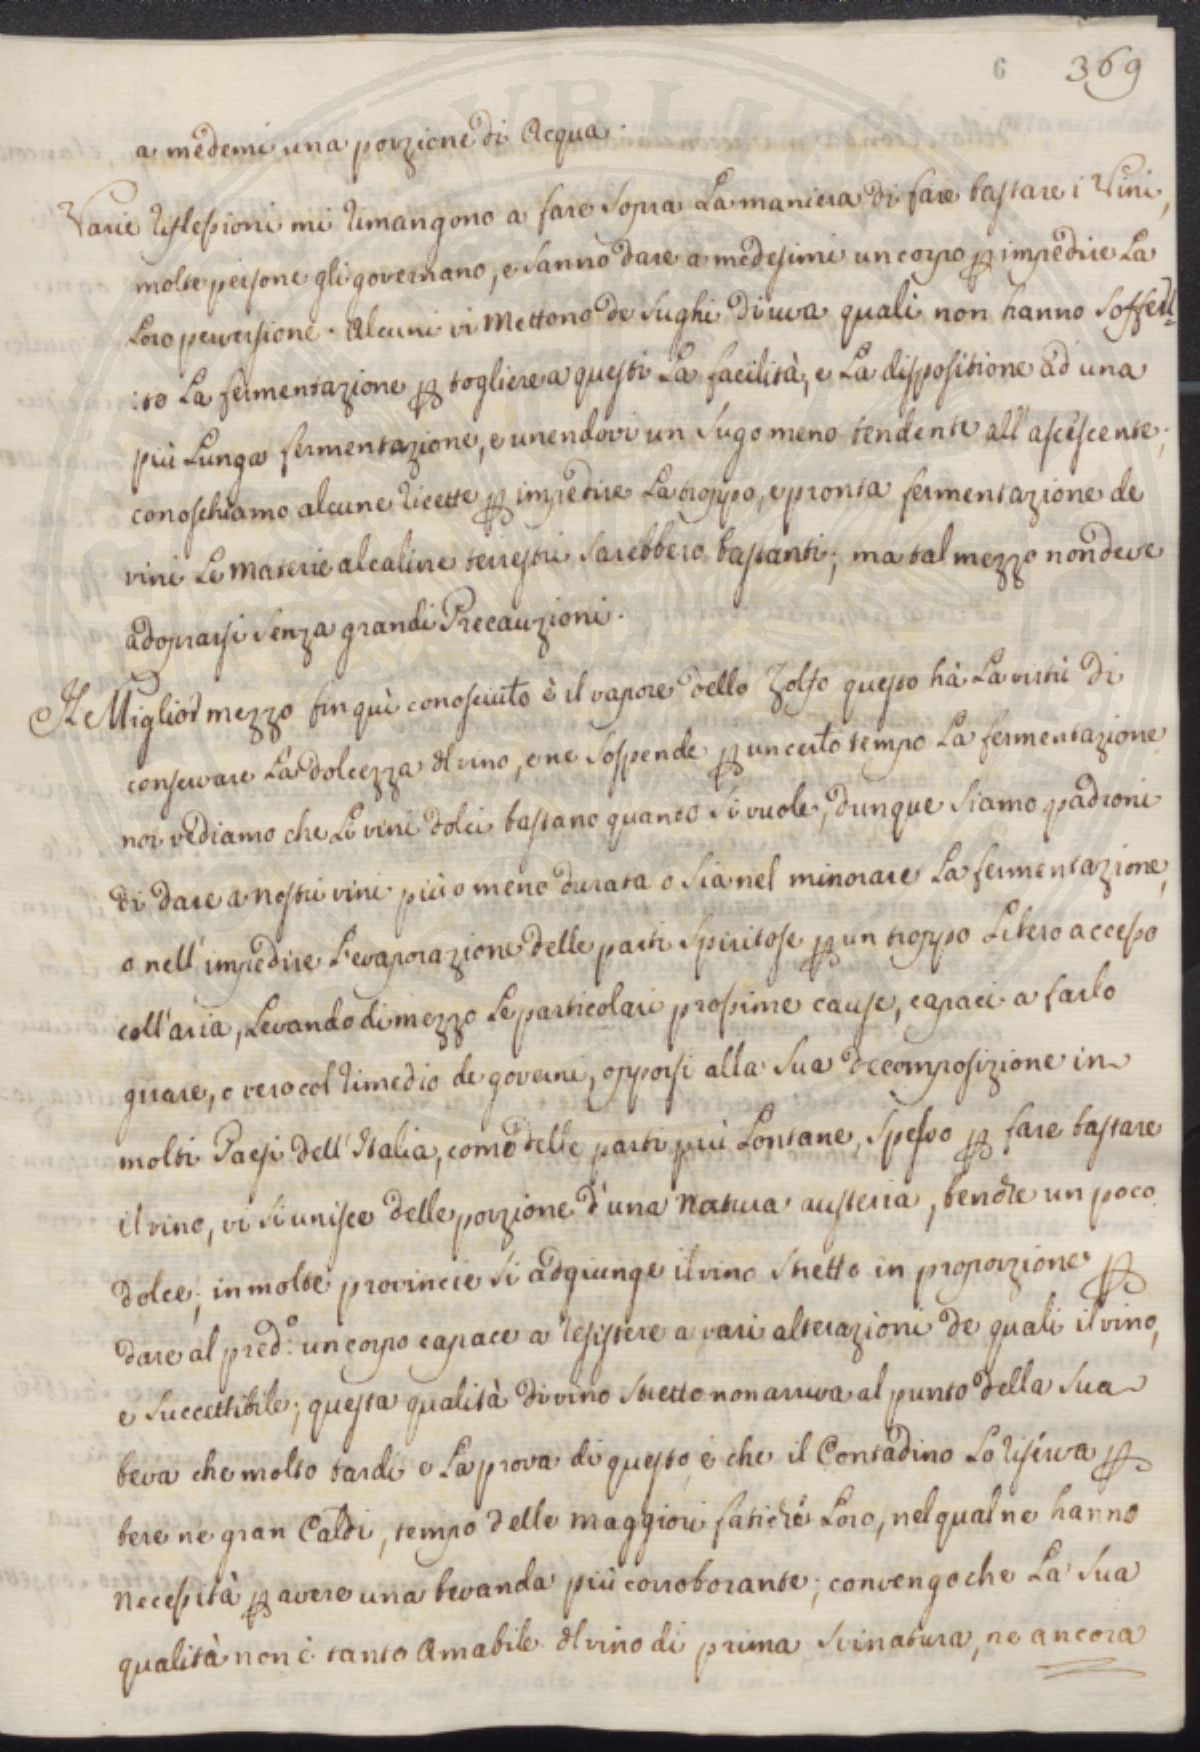 6 369
a medemi una porzione di Acqua.
Varie riflessioni mi rimangono a fare sopra La maniera di fare bastare i Vini,
molte persone gli governano, e sanno dare a medesimi un corpo p impedire La
Loro perversione. Alcuni vi Mettono de Sughi di uva quali non hanno Sofferi=
:to La fermentazione p togliere a questi La facilità, e La dispositione ad una
più Lunga fermentazione, e unendovi un Sugo meno tendente all'ascescente;
conoschiamo alcune ricette p impedire La troppo, e pronta fermentazione de
vini Le Materie alcaline terrestri Sarebbero bastanti; ma tal mezzo non deve
adoprarsi Senza grandi Precauzioni.
Il Miglior mezzo fin quì conosciuto è il vapore dello Zolfo questo hà La virtù di
conservare La dolcezza al vino, e ne Sospende p un certo tempo La fermentazione
noi vediamo che Li vini dolci bastano quanto Si vuole, dunque Siamo padroni
di dare a nostri vini più o meno durata o Sia nel minorare La fermentazione,
o nell'impedire L'evaporazione delle parti Spiritose p un troppo Libero accesso
coll'aria, Levando di mezzo Le particolari prossime cause, capaci a farlo
guare, o vero col rimedio de governi, opporsi alla Sua decomposizione in
molti Paesi dell'Italia, come delle parti più Lontane, Spesso p fare bastare
il vino, vi Si unisce delle porzione d'una Natura austeria, benche un poco
dolce; in molte provincie Si adgiunge il vino Stretto in proporzione p
dare al pred.º un corpo capace a resistere a vari alterazioni de quali il vino,
e Succettibile; questa qualità di vino Stretto non arriva al punto della Sua
beva che molto tardi e La prova di questo, è che il Contadino Lo riserva p
bere ne gran Caldi, tempo delle maggiori fatiche Loro, nel qual ne hanno
Necessità p avere una bevanda più corroborante; convengo che La Sua
qualità non è tanto Amabile al vino di prima Svinatura, ne ancora